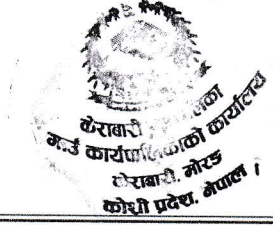 केराबारी
गाउँ कार्यपालिकाको कार्यालय
केराबारी, मोरङ
कोशी प्रदेश, नेपाल ।